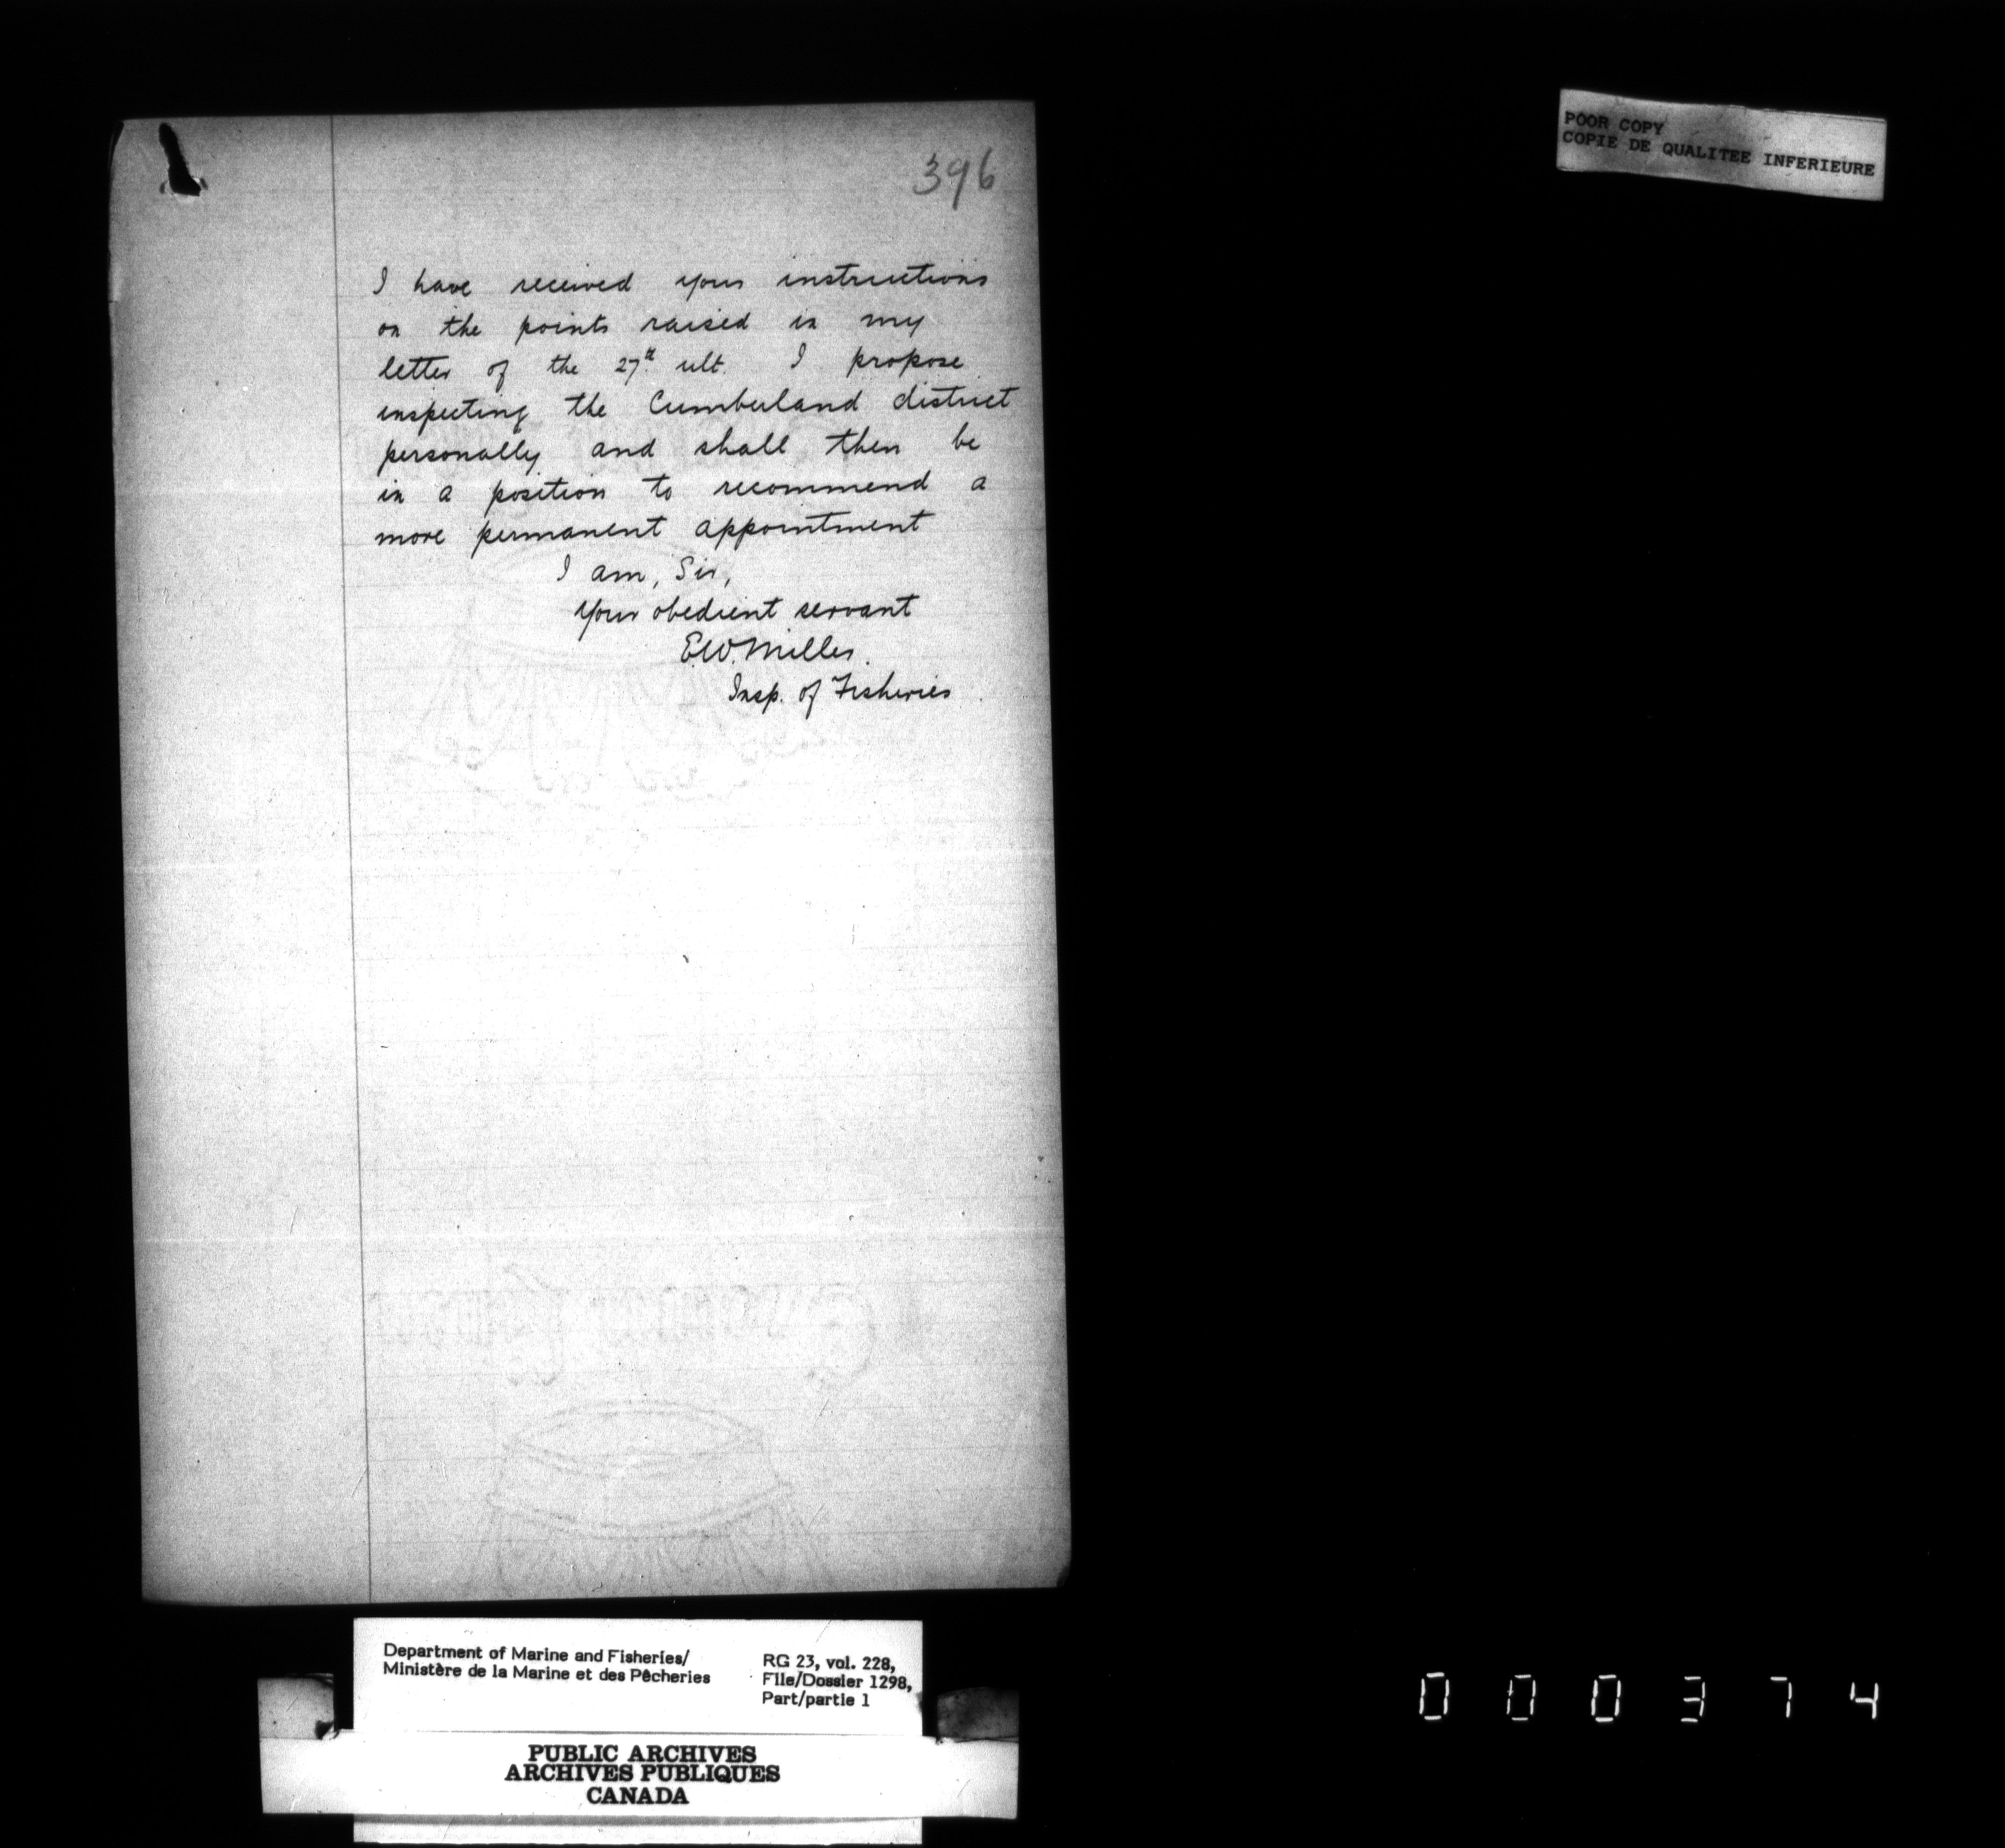 396
POOR COPY
COPIE DE QUALITEE INFERIEURE
I have received your instructions
on the points raised in my
letter of the 27th ult. I propose
inspecting the Cumberland district
personally and shall then be
in a position to recommend a
more permanent appointment
I am, Sir,
Your obedient servant
E.W. Miller.
Insp. of Fisheries.
Department of Marine and Fisheries/
Ministère de la Marine et des Pêcheries
RG 23, vol. 228,
File/Dossier 1298,
Part/partie 1
PUBLIC ARCHIVES
ARCHIVES PUBLIQUES
CANADA
000374